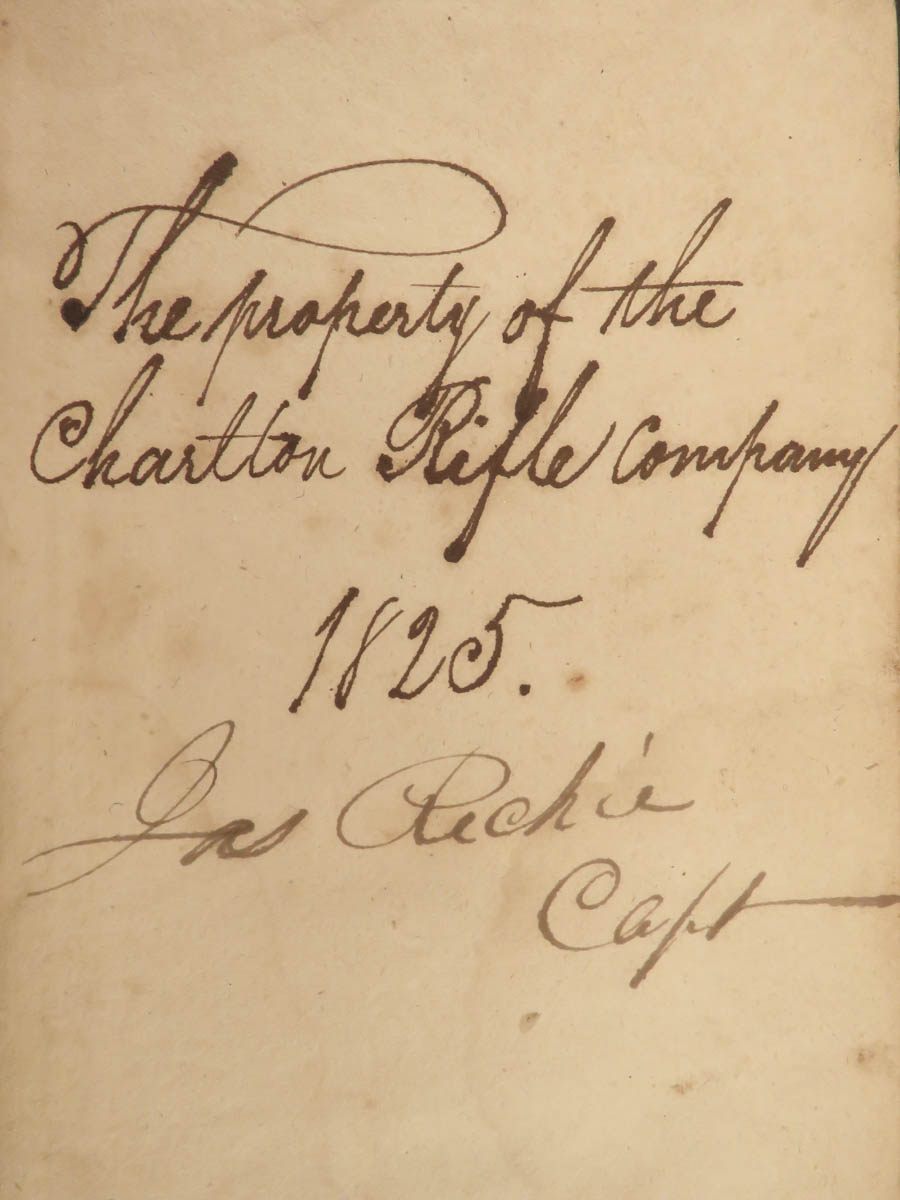 The property of the
Chartton Rifle Company
1825.
Jas Richie
Capt